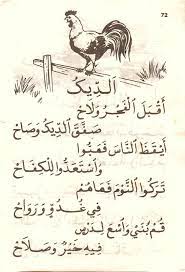 ٧٢
اَلدِّيكُ
أَقْبَلَ الْفَجْرُ وَلَاحْ
صَفَّقَ الدِّيكُ وَصَاحْ
أَيْقَظَ النَّاسَ فَهَبُّوا
وَاسْتَعَدُّوا لِلْكِفَاحْ
تَرَكُوا النَّوْمَ فَهَاهُمْ
فِي غُدُوٍّ وَرَوَاحْ
قُمْ بُنَيَّ وَاسْعَ لِدَرْسٍ
فِيهِ خَيْرٌ وَصَلَاحْ